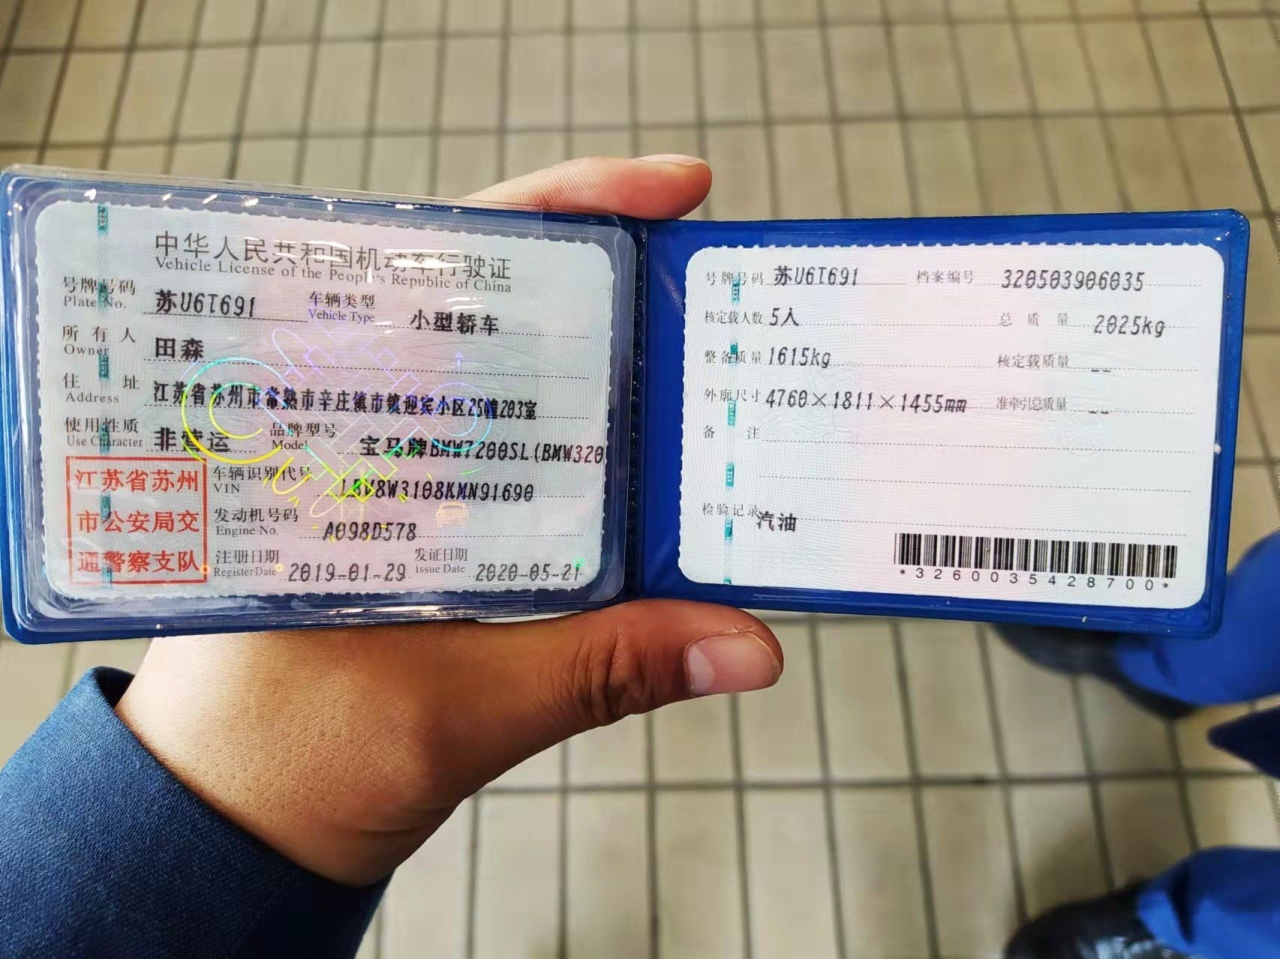 中华人民共和国机动车行驶证
Vehicle License of the People's Republic of China
号牌号码 苏U6T691 车辆类型 小型轿车
Plate No. Vehicle Type
所有人 田森
Owner
住址 江苏省苏州市常熟市辛庄镇市镇迎宾小区25幢203室
Address
使用性质 非营运 品牌型号 宝马牌BMW7200SL(BMW320
Use Character Model
江苏省苏州
市公安局交
通警察支队
车辆识别代号
VIN
发动机号码 A098D578
Engine No.
注册日期 2019-01-29 发证日期 2020-05-21
Register Date Issue Date
号牌号码 苏U6T691 档案编号 320503906035
核定载人数 5人 总质量 2025kg
整备质量 1615kg 核定载质量 --
外廓尺寸 4760×1811×1455mm 准牵引总质量 --
备注
检验记录 汽油
*3260035428700*